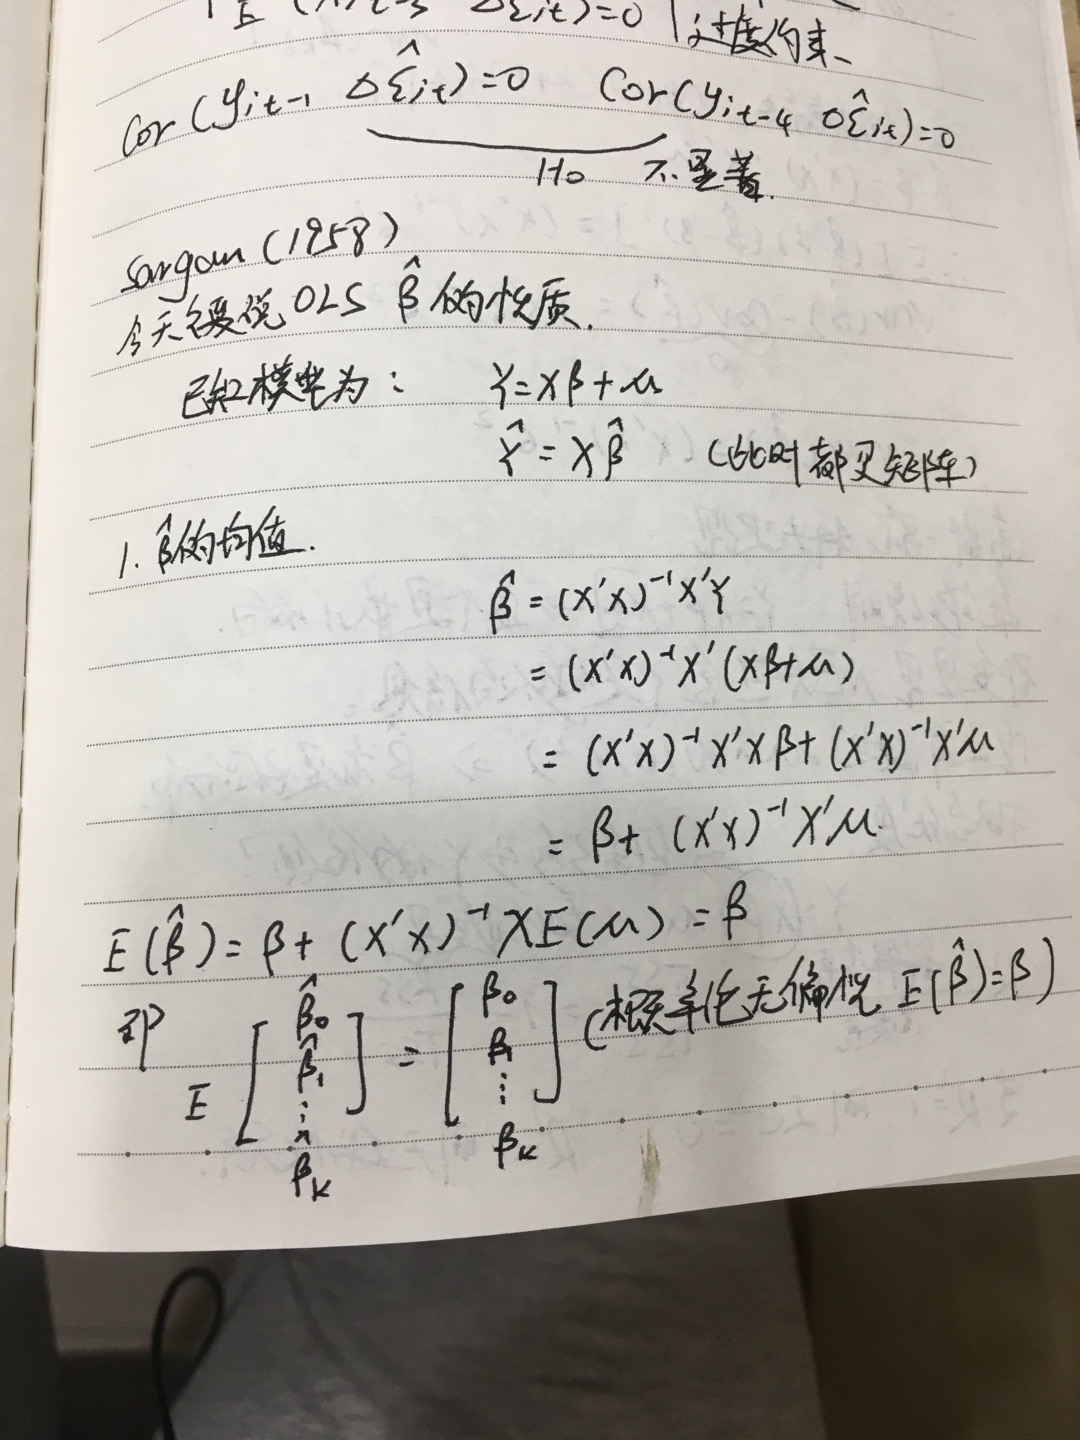 E ( it-3 Δε̂it)=0 过度约束
Cor(yit-1 Δε̂it)=0 Cor(yit-4 Δε̂it)=0
H0 不显著.
Sargan(1958)
今天要说OLS β̂的性质.
已知模型为: Y=Xβ+μ
Ŷ=Xβ̂ (此时都是矩阵)
1. β̂的均值.
β̂ = (X'X)⁻¹X'Y
= (X'X)⁻¹X'(Xβ+μ)
= (X'X)⁻¹X'Xβ+(X'X)⁻¹X'μ
= β+ (X'X)⁻¹X'μ.
E(β̂)=β+(X'X)⁻¹XE(μ)=β
即 E [β̂0 β̂1 ⋮ β̂k] = [β0 β1 ⋮ βk] (概率论无偏性 E(β̂)=β)